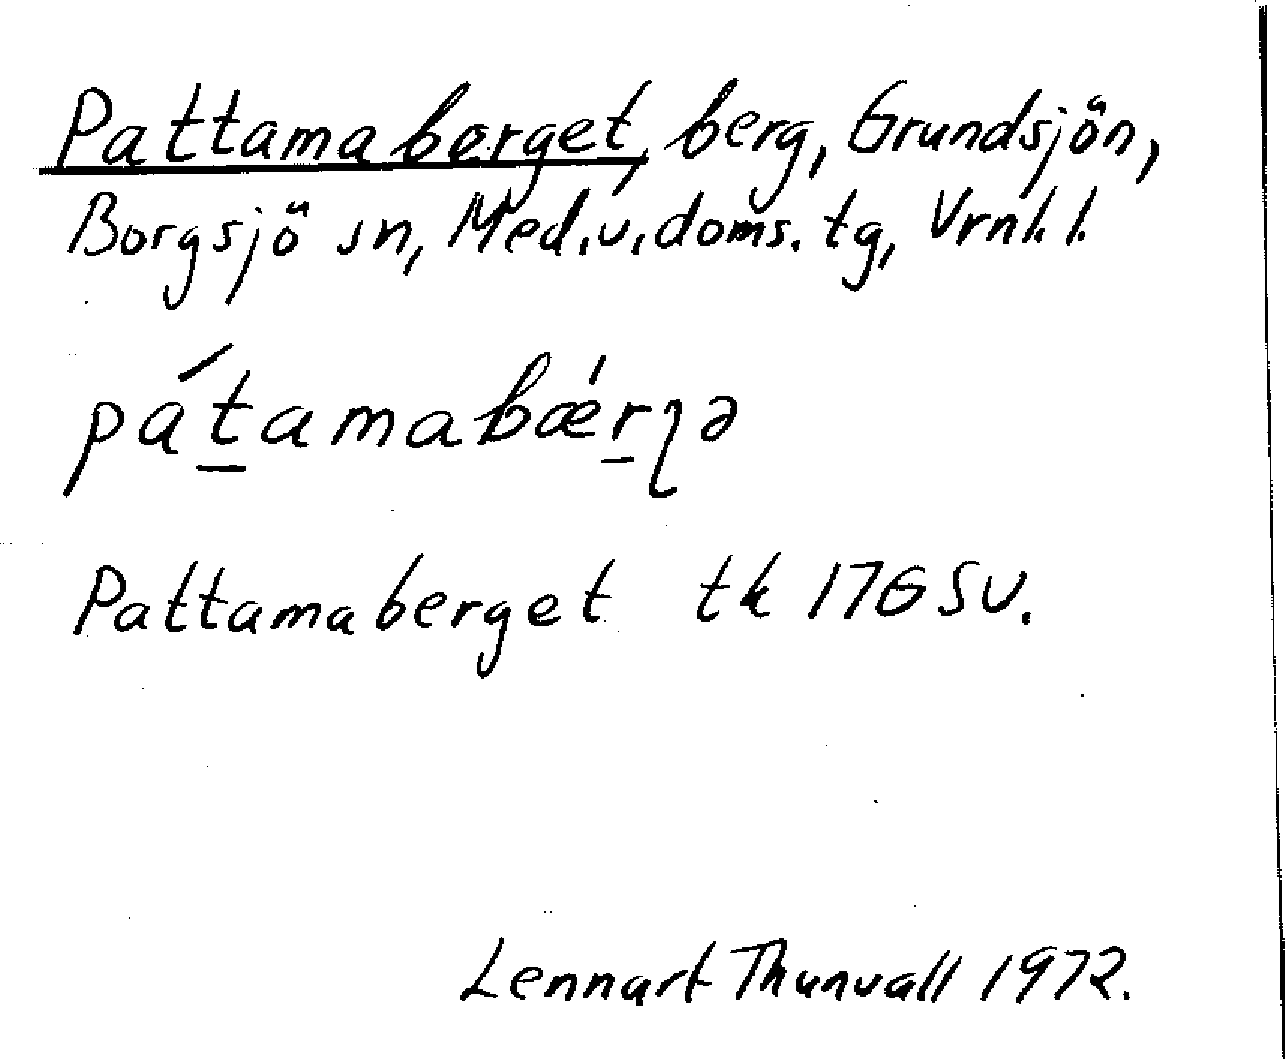 Pattamaberget, berg, Grundsjön,
Borgsjö sn, Med.v.doms.tg, Vrnl.l.
pát̲amabǽr̲ʅə
Pattamaberget tk 17G SV.
Lennart Thunvall 1972.